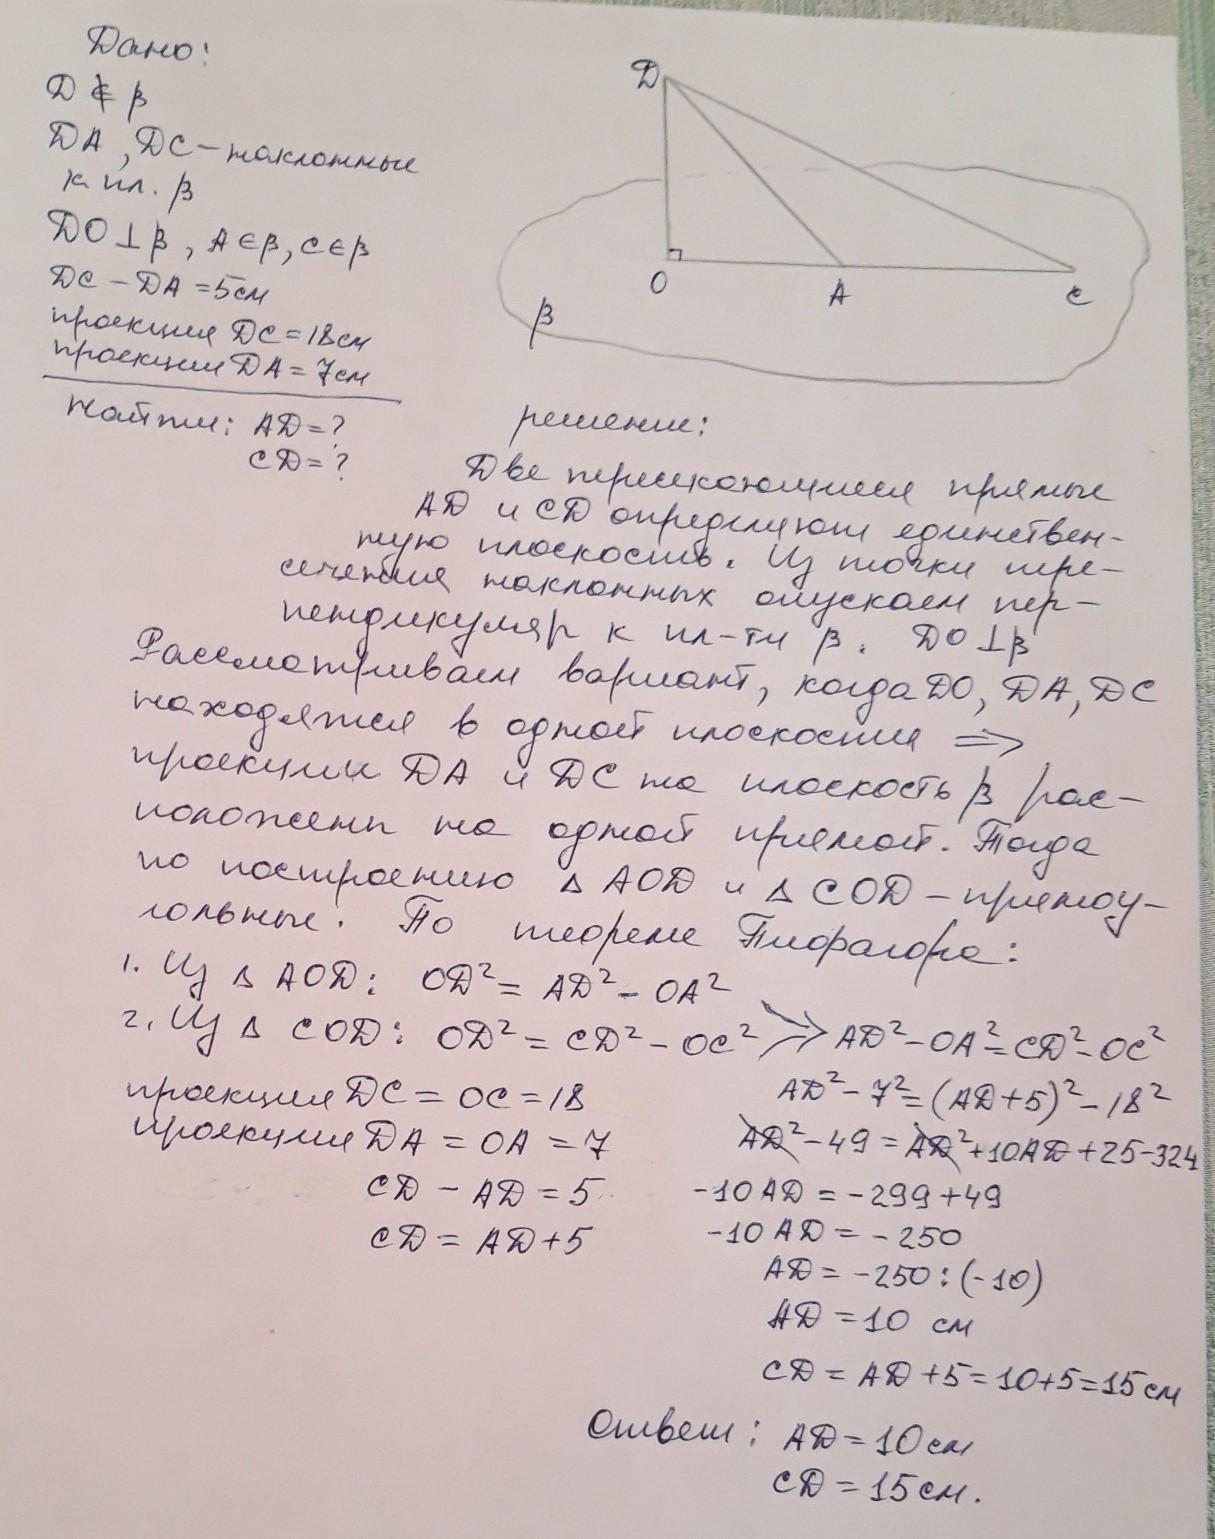 Дано:
D ∉ β
DA, DC – наклонные
к пл. β
DO ⊥ β, A ∈ β, C ∈ β
DC – DA = 5см
проекция DC = 18см
проекция DA = 7см
Найти: AD = ?
CD = ?
D
O
A
C
β
решение:
Две пересекающиеся прямые
AD и CD определяют единствен-
ную плоскость. Из точки пере-
сечения наклонных опускаем пер-
пендикуляр к пл-ти β. DO ⊥ β
Рассматриваем вариант, когда DO, DA, DC
находятся в одной плоскости =>
проекции DA и DC на плоскость β рас-
положены на одной прямой. Тогда
по построению Δ AOD и Δ COD – прямоу-
гольные. По теореме Пифагора:
1. Из Δ AOD: OD² = AD² – OA²
2. Из Δ COD: OD² = CD² – OC² => AD² – OA² = CD² – OC²
проекция DC = OC = 18
проекция DA = OA = 7
CD – AD = 5
CD = AD + 5
AD² – 7² = (AD + 5)² – 18²
AD² – 49 = AD² + 10AD + 25 – 324
-10 AD = -299 + 49
-10 AD = -250
AD = -250 : (-10)
AD = 10 см
CD = AD + 5 = 10 + 5 = 15 см
Ответ: AD = 10 см
CD = 15 см.